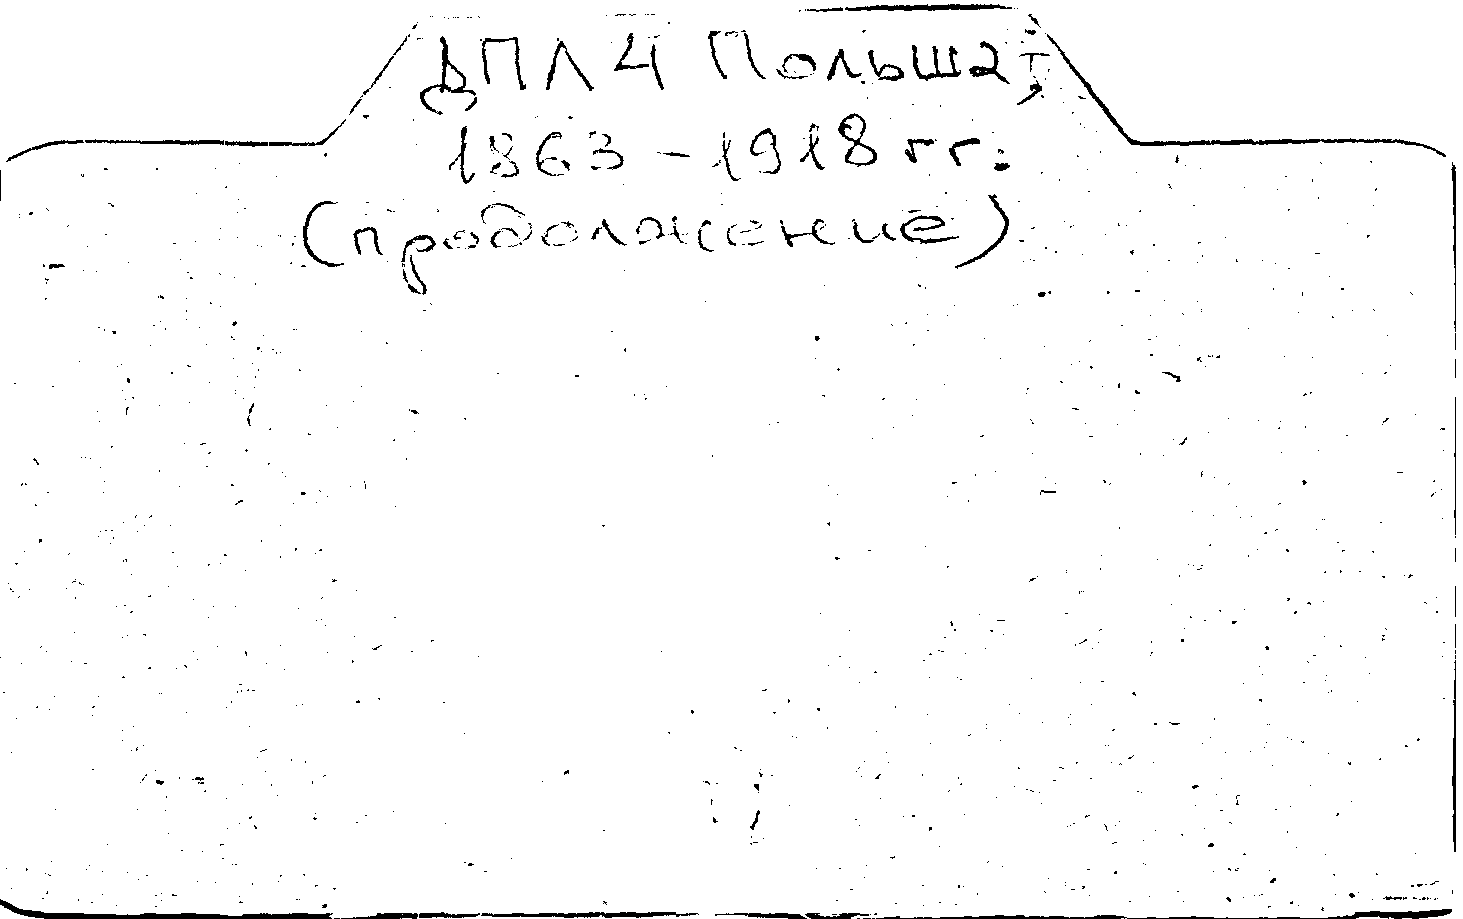 ДПЛ 4 Польша,
1863-1918 гг.
(продолжение)